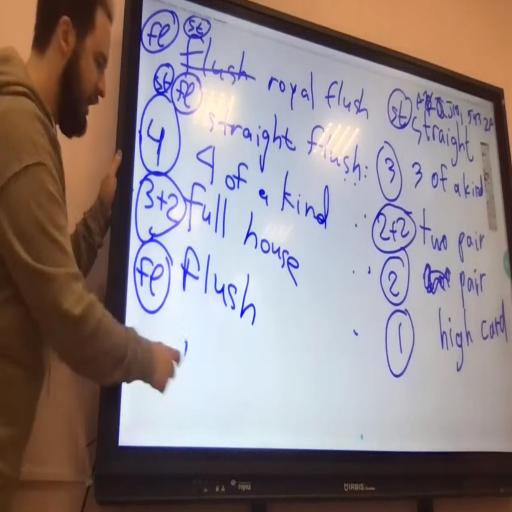 fl st
flush royal flush
st fl straight flush:
4 4 of a kind
3+2 full house
fl flush
st straight
3 3 of a kind
2+2 two pair
2 pair
1 high card
IRBIS